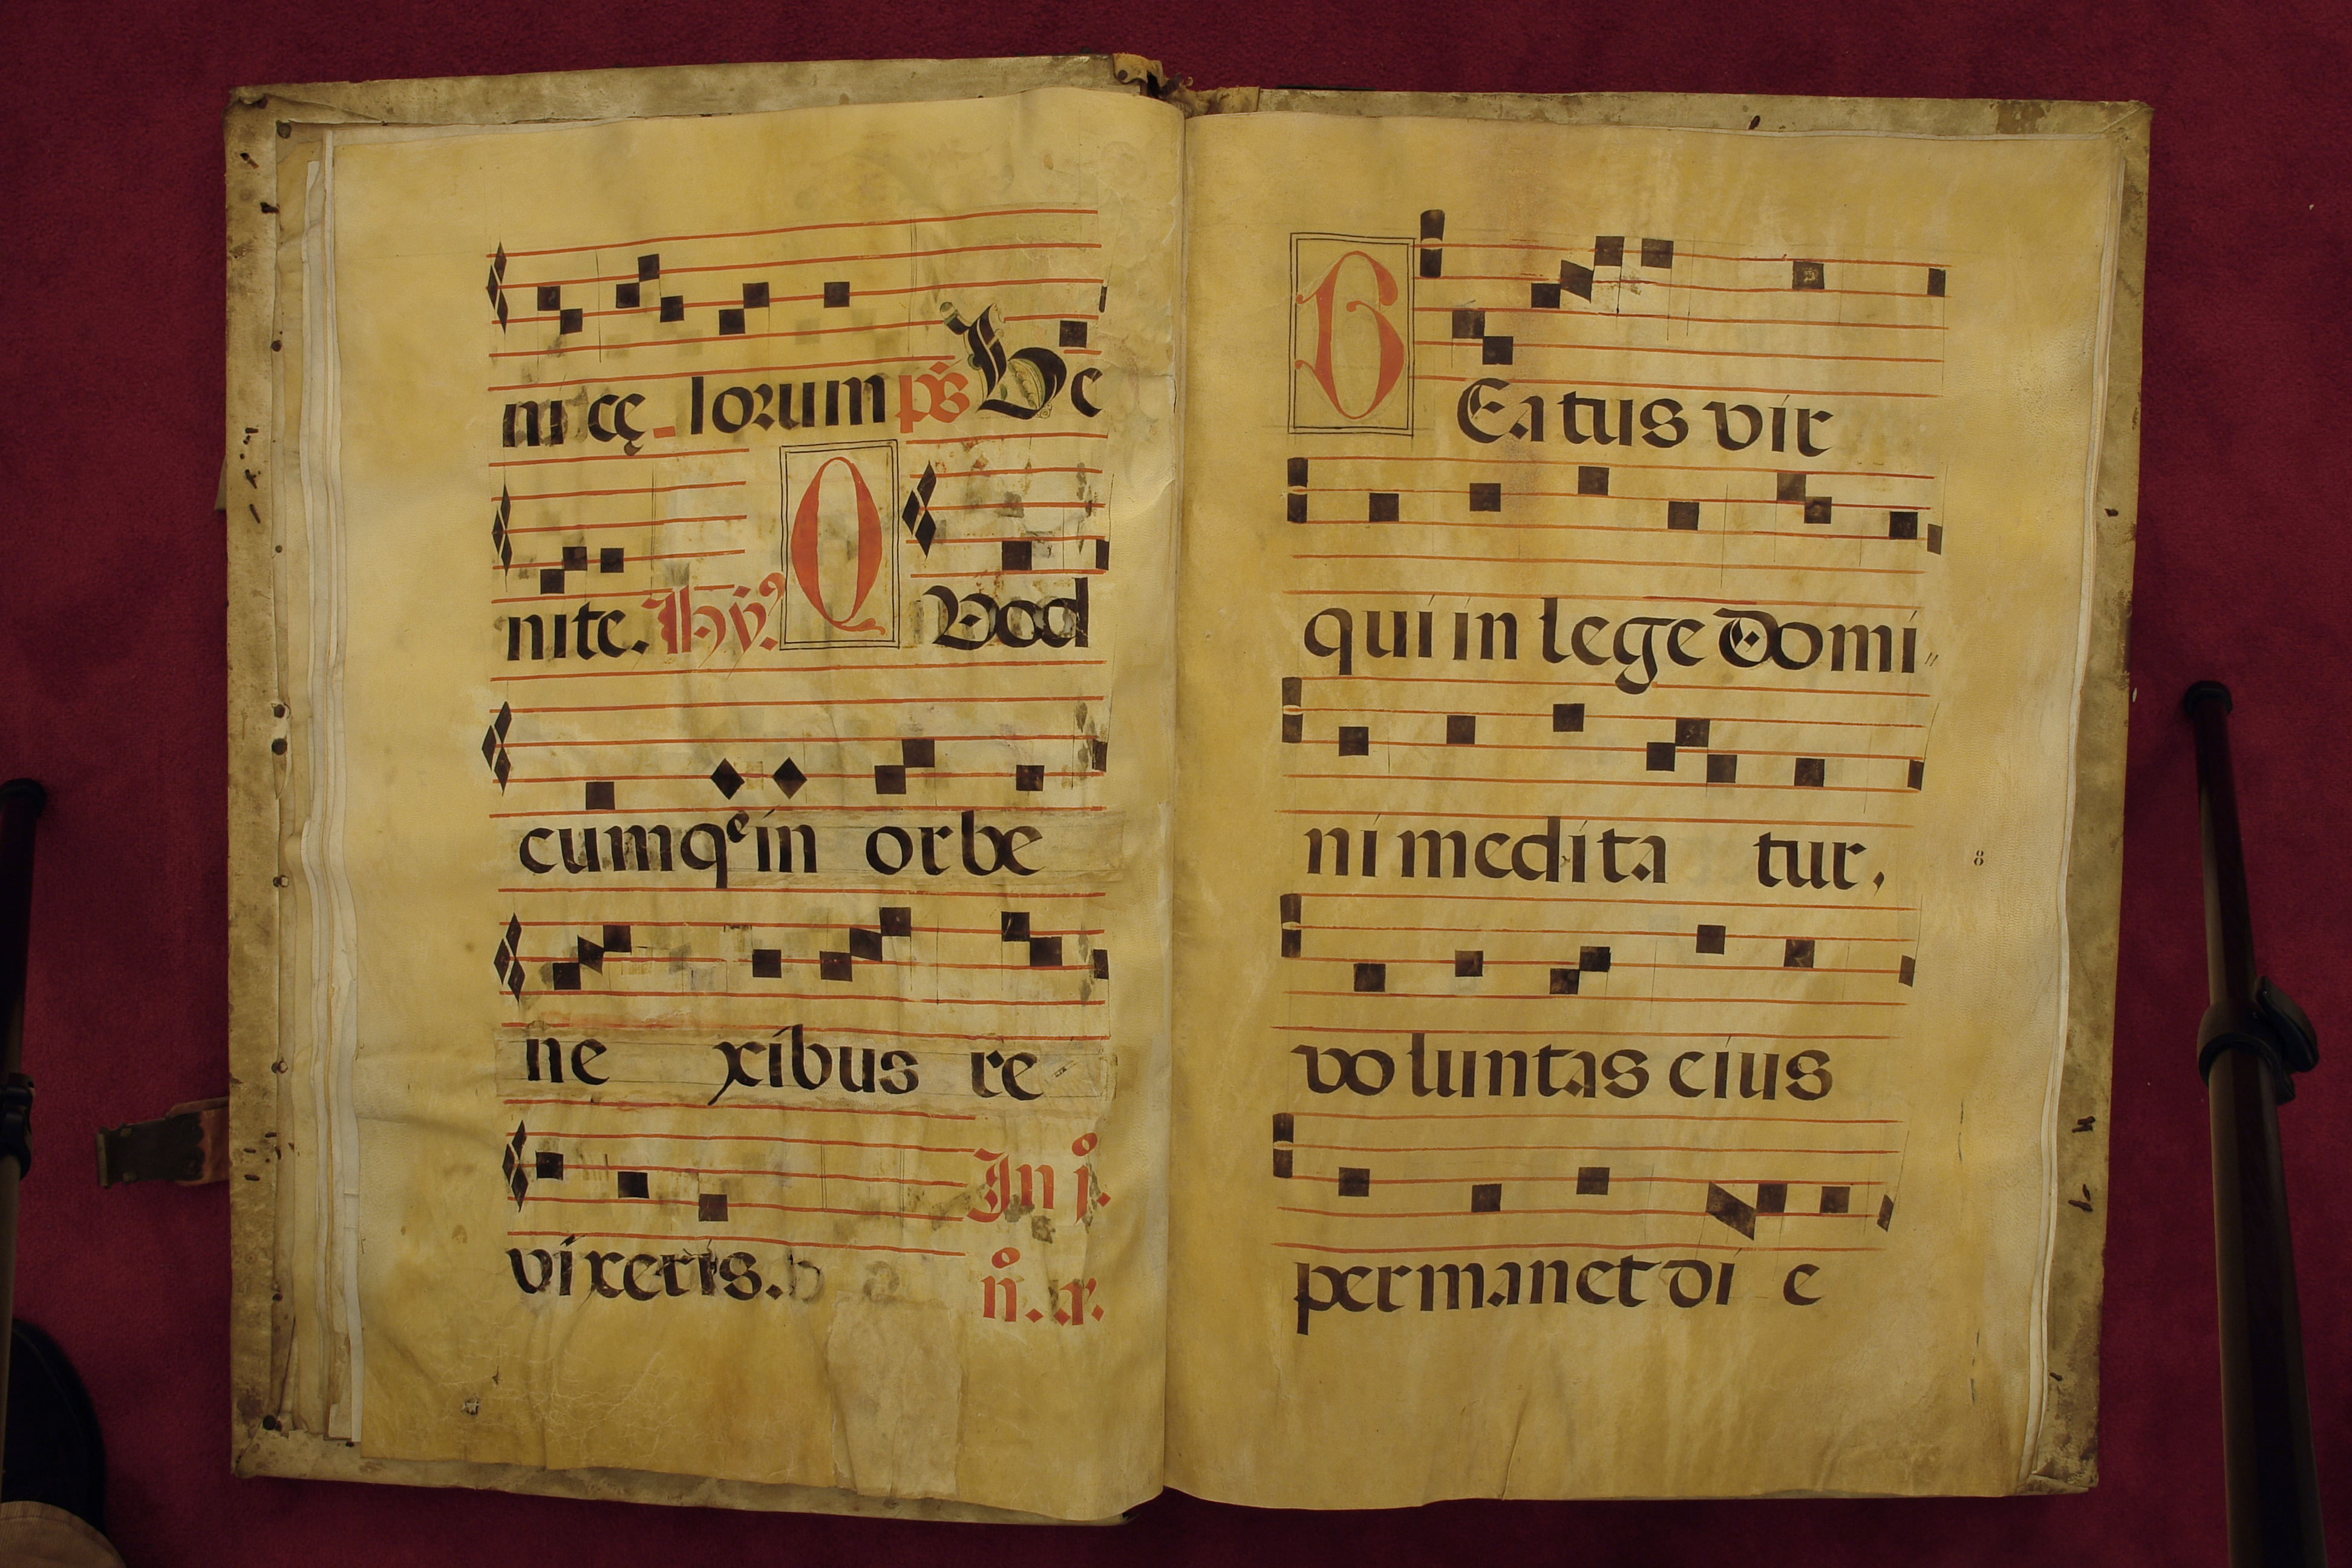 ni cę lorum ps Ve
nite. Hy. Q Vod
cumqe in orbe
ne xibus re
vixeris. In j.
n.
B Eatus vir
qui in lege Domi
ni medita tur,
8
voluntas eius
permanet di e